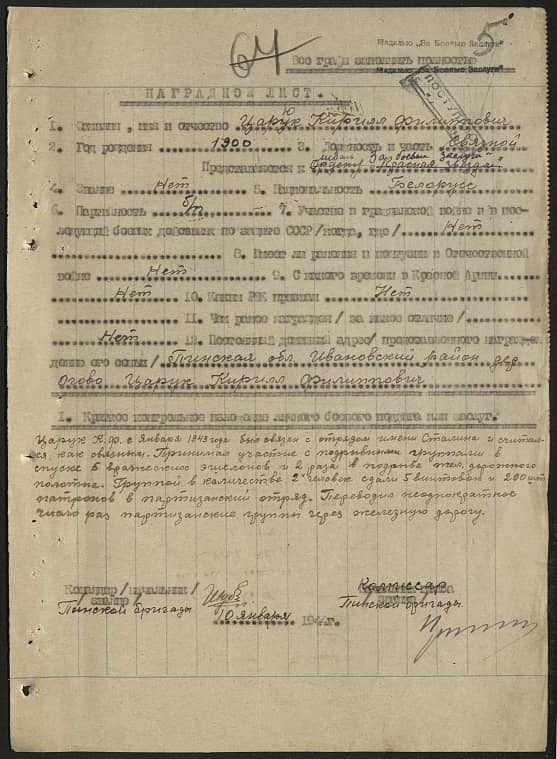 64
5
Медалью „За Боевые Заслуги"
Все графы заполнять полностью
Медалью „За Боевые Заслуги"
НАГРАДНОЙ ЛИСТ.
1. Фамилия, имя и отчество Царук Кирилл Филиппович
2. Год рождения 1900 3. Должность и часть Связной
Представляется к медали За боевые заслуги
Ордену „Красная звезда"
4. Звание Нет 5. Национальность Беларусс
6. Партийность б/п 7. Участие в гражданской войне и в пос-
ледующих боевых действиях по защите СССР /когда, где/ Нет
8. Имеет ли ранения и контузии в Отечественной
войне Нет 9. С какого времени в Красной Армии
Нет 10. Каким РВК призван Нет
11. Чем ранее награжден / за какие отличия /
Нет 12. Постоянный домашний адрес/ представляемого к награжде-
дению его семьи / Пинская обл. Ивановский район дер.
Огово Царук Кирилл Филиппович
1. Краткое контрольное изложение личного боевого подвига или заслуг.
Царук К.Ф. с Января 1943 года был связан с отрядом имени Сталина и считал-
ся, как связным. Принимал участие с подрывными группами в
спуске 5 вражеских эшелонов и 2 раза в подрыве жел. дорожного
полотна. Группой в количестве 2 человек сдали 5 винтовок и 200 шт
патронов в партизанский отряд. Переводил неоднократное
число раз партизанские группы через железную дорогу.
Командир / начальник / Комиссар
Пинской бригады Пинской бригады.
10 января 1944г.